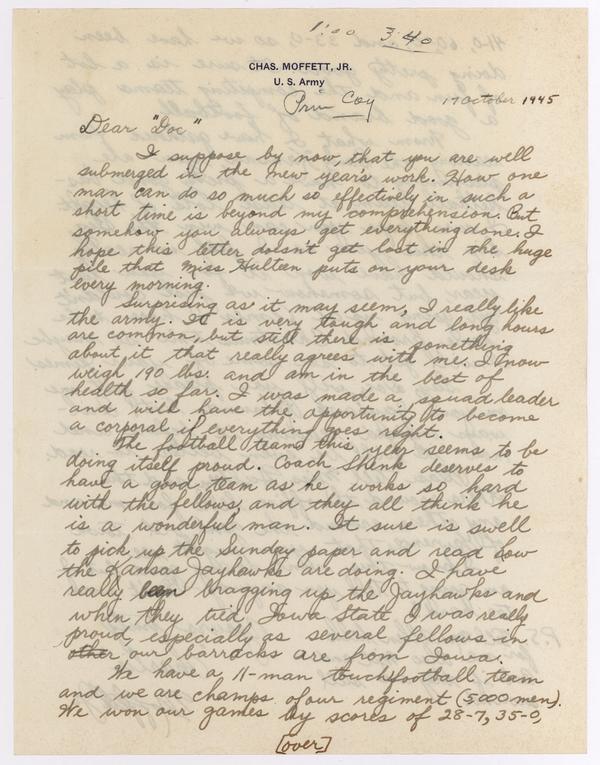 1:00 3:40
CHAS. MOFFETT, JR.
U. S. Army
Coy
17 October 1945
Dear "Doc"
I suppose by now, that you are well
submerged in the new year's work. How one
man can do so much so effectively in such a
short time is beyond my comprehension. But
somehow you always get everything done. I
hope this letter doesn't get lost in the huge
pile that Miss Hulteen puts on your desk
every morning.
Surprising as it may seem, I really like
the army. It is very tough and long hours
are common, but still there is something
about it that really agrees with me. I now
weigh 190 lbs. and am in the best of
health so far. I was made a squad leader
and will have the opportunity to become
a corporal if everything goes right.
The football team this year seems to be
doing itself proud. Coach Shenk deserves to
have a good team as he works so hard
with the fellows, and they all think he
is a wonderful man. It sure is swell
to pick up the Sunday paper and read how
the Kansas Jayhawks are doing. I have
really been bragging up the Jayhawks and
when they tied Iowa State I was really
proud, especially as several fellows in
other our barracks are from Iowa.
We have a 11-man touch football team
and we are champs of our regiment (5,000 men).
We won our games by scores of 28-7, 35-0,
[over]